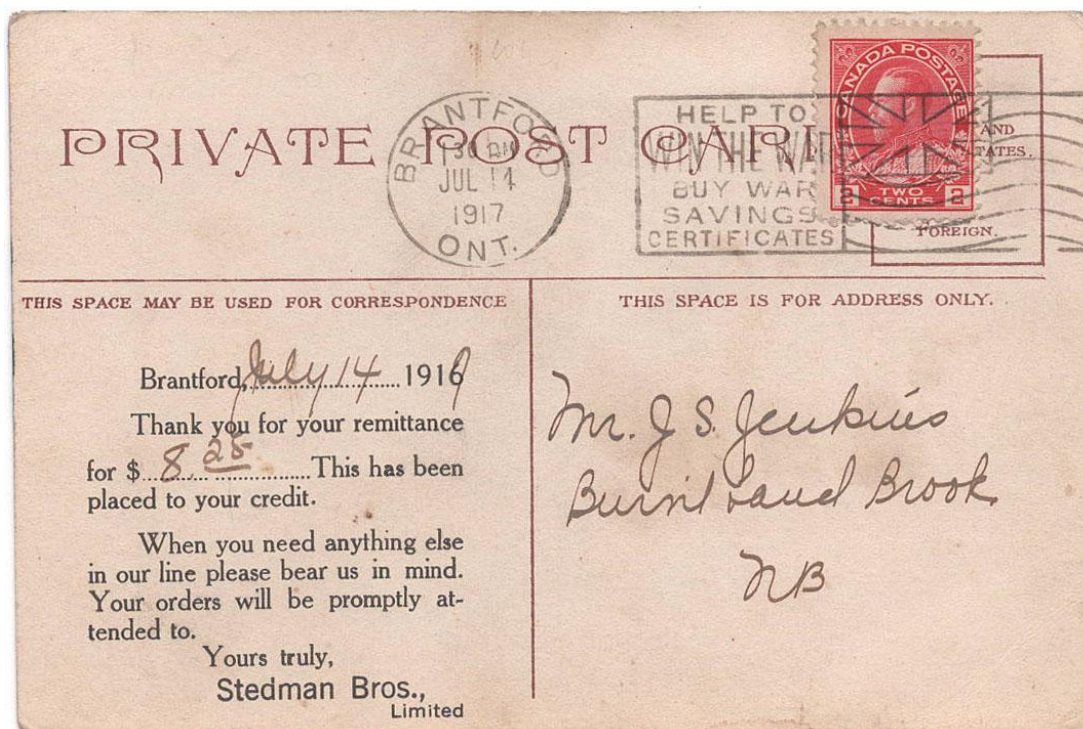 PRIVATE POST CARD
BRANTFORD
JUL 14
1917
ONT.
HELP TO
WIN THE WAR
BUY WAR
SAVINGS
CERTIFICATES
CANADA POSTAGE
2 TWO CENTS 2
AND
STATES.
FOREIGN.
THIS SPACE MAY BE USED FOR CORRESPONDENCE
Brantford, July 14 1917
Thank you for your remittance
for $ 8.25 This has been
placed to your credit.
When you need anything else
in our line please bear us in mind.
Your orders will be promptly at-
tended to.
Yours truly,
Stedman Bros.,
Limited
THIS SPACE IS FOR ADDRESS ONLY.
Mr. J S. Jenkins
Burnt Land Brook
NB